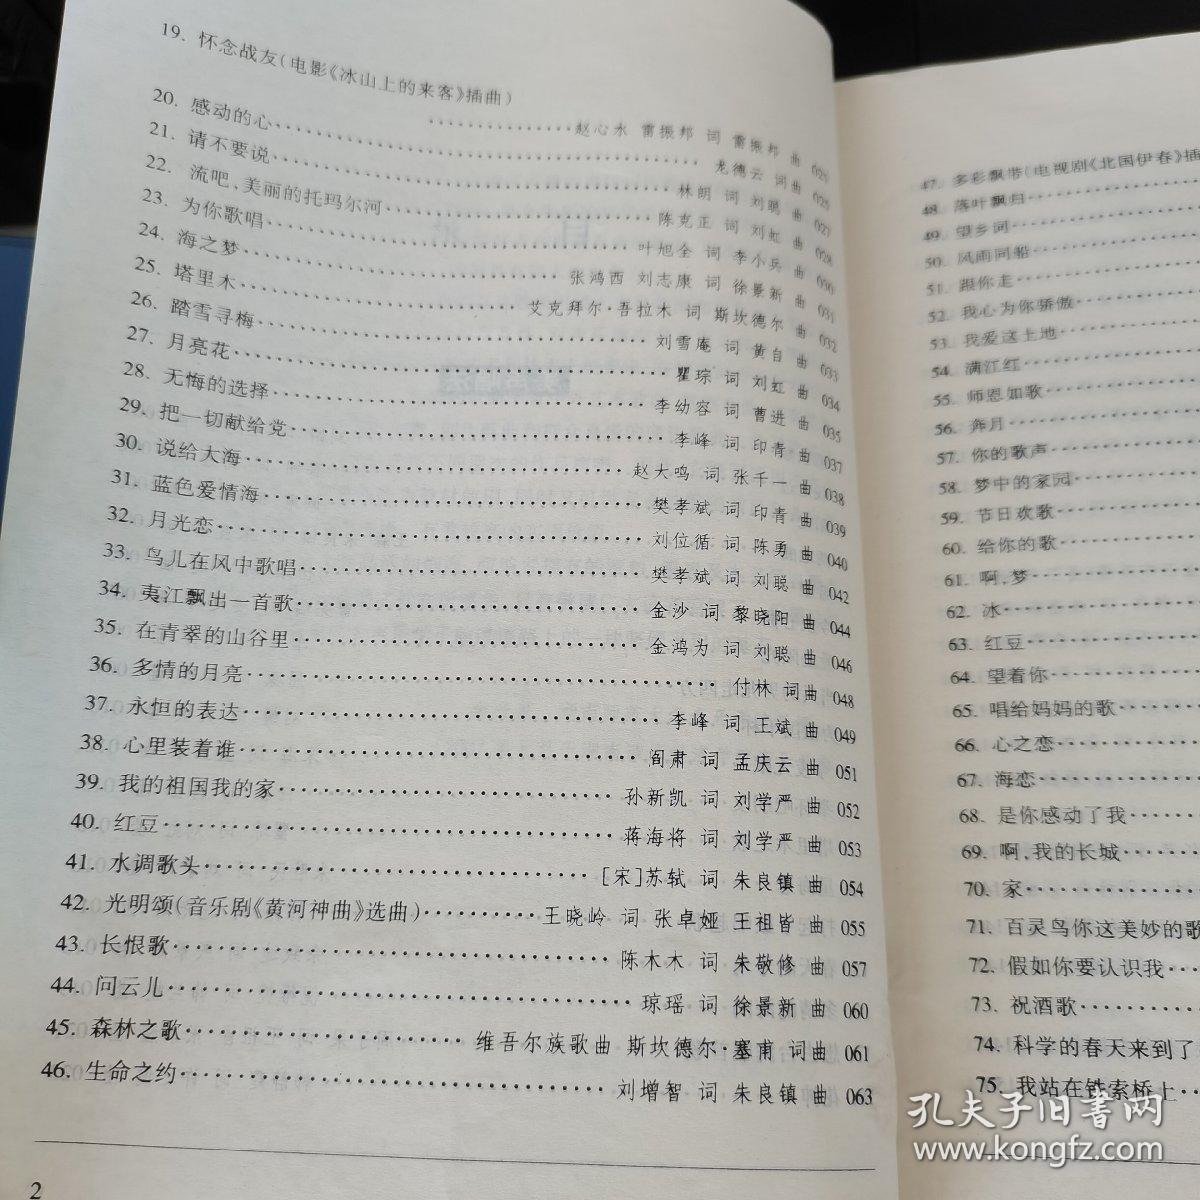 19. 怀念战友(电影《冰山上的来客》插曲)
赵心水 雷振邦 词 雷振邦 曲
20. 感动的心 龙德云 词曲 025
21. 请不要说 林朗 词 刘聪 曲 027
22. 流吧,美丽的托玛尔河 陈克正 词 刘虹 曲 028
23. 为你歌唱 叶旭全 词 李小兵 曲 030
24. 海之梦 张鸿西 刘志康 词 徐景新 曲 031
25. 塔里木 艾克拜尔·吾拉木 词 斯坎德尔 曲 032
26. 踏雪寻梅 刘雪庵 词 黄自 曲 033
27. 月亮花 瞿琮 词 刘虹 曲 034
28. 无悔的选择 李幼容 词 曹进 曲 035
29. 把一切献给党 李峰 词 印青 曲 037
30. 说给大海 赵大鸣 词 张千一 曲 038
31. 蓝色爱情海 樊孝斌 词 印青 曲 039
32. 月光恋 刘位循 词 陈勇 曲 040
33. 鸟儿在风中歌唱 樊孝斌 词 刘聪 曲 042
34. 夷江飘出一首歌 金沙 词 黎晓阳 曲 044
35. 在青翠的山谷里 金鸿为 词 刘聪 曲 046
36. 多情的月亮 付林 词曲 048
37. 永恒的表达 李峰 词 王斌 曲 049
38. 心里装着谁 阎肃 词 孟庆云 曲 051
39. 我的祖国我的家 孙新凯 词 刘学严 曲 052
40. 红豆 蒋海将 词 刘学严 曲 053
41. 水调歌头 [宋]苏轼 词 朱良镇 曲 054
42. 光明颂(音乐剧《黄河神曲》选曲) 王晓岭 词 张卓娅 王祖皆 曲 055
43. 长恨歌 陈木木 词 朱敬修 曲 057
44. 问云儿 琼瑶 词 徐景新 曲 060
45. 森林之歌 维吾尔族歌曲 斯坎德尔·塞甫 词曲 061
46. 生命之约 刘增智 词 朱良镇 曲 063
2
47. 多彩飘带(电视剧《北国伊春》插
48. 落叶飘归
49. 望乡词
50. 风雨同船
51. 跟你走
52. 我心为你骄傲
53. 我爱这土地
54. 满江红
55. 师恩如歌
56. 奔月
57. 你的歌声
58. 梦中的家园
59. 节日欢歌
60. 给你的歌
61. 啊,梦
62. 冰
63. 红豆
64. 望着你
65. 唱给妈妈的歌
66. 心之恋
67. 海恋
68. 是你感动了我
69. 啊,我的长城
70. 家
71. 百灵鸟你这美妙的歌
72. 假如你要认识我
73. 祝酒歌
74. 科学的春天来到了
75. 我站在铁索桥上
孔夫子旧书网
www.kongfz.com